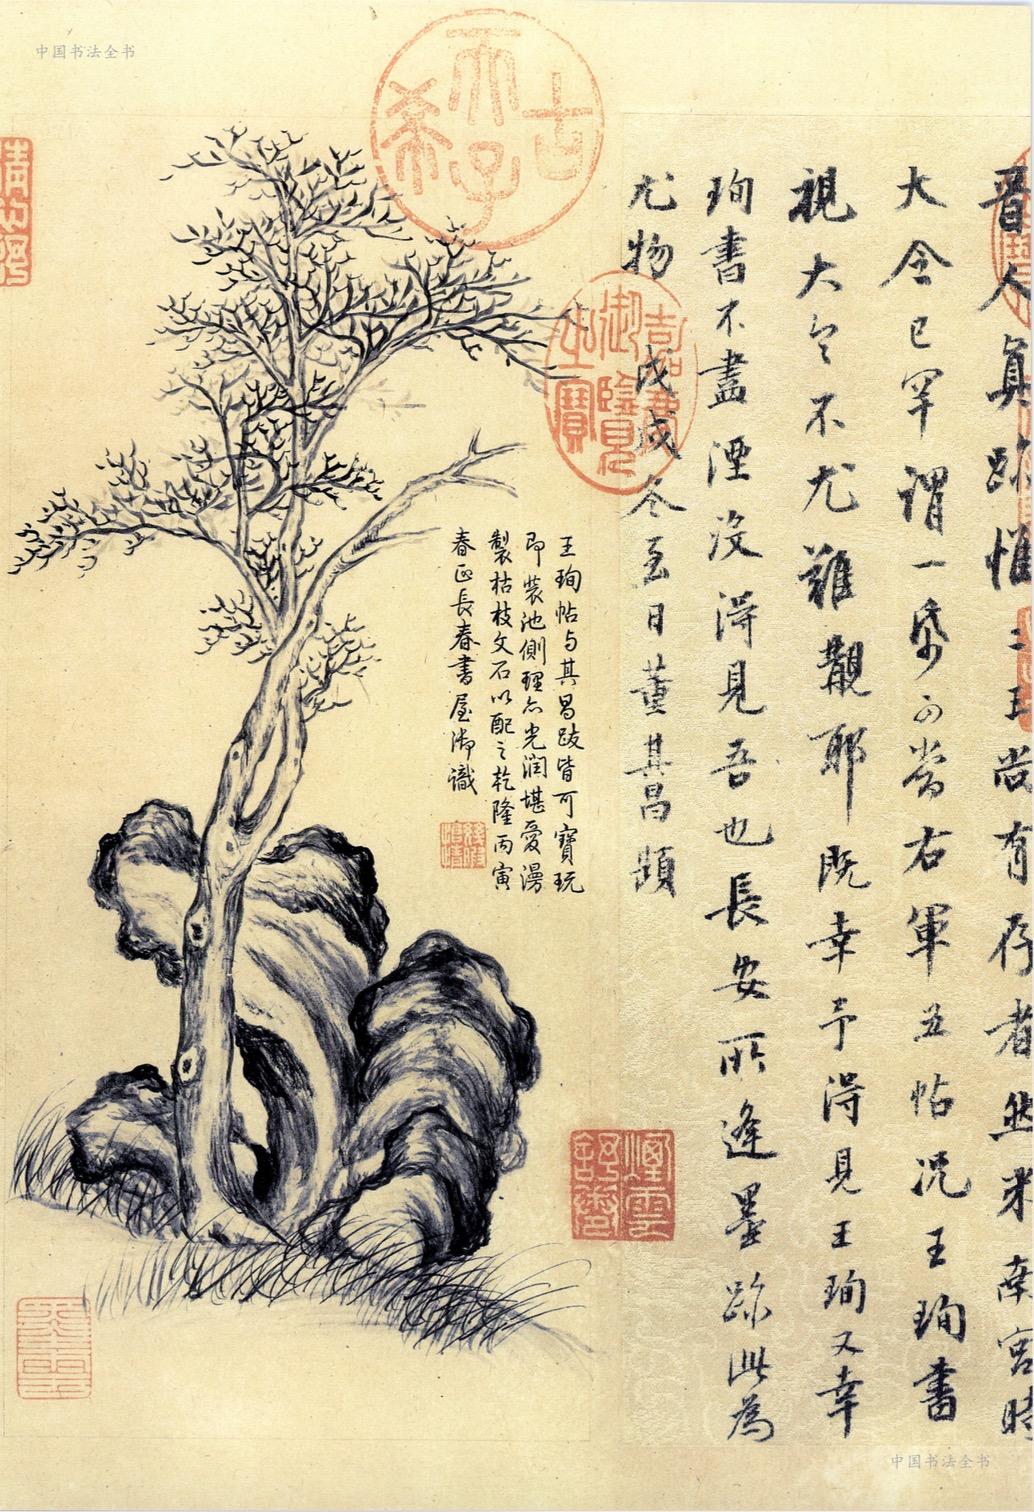 中国书法全书
古希天子
嘉慶御覽之寶
晋人真跡惟二王尚有存者然米南宮時
大令已罕謂一紙可當右軍五帖況王珣書
視大令不尤難覯耶既幸予得見王珣又幸
珣書不盡湮沒得見吾也長安所逢墨跡此為
尤物戊戌冬至日董其昌題
王珣帖与其昌跋皆可寶玩
即裝池側理亦光潤堪愛漫
製枯枝文石以配之乾隆丙寅
春正長春書屋御識
乾隆宸翰
煙雲
中国书法全书